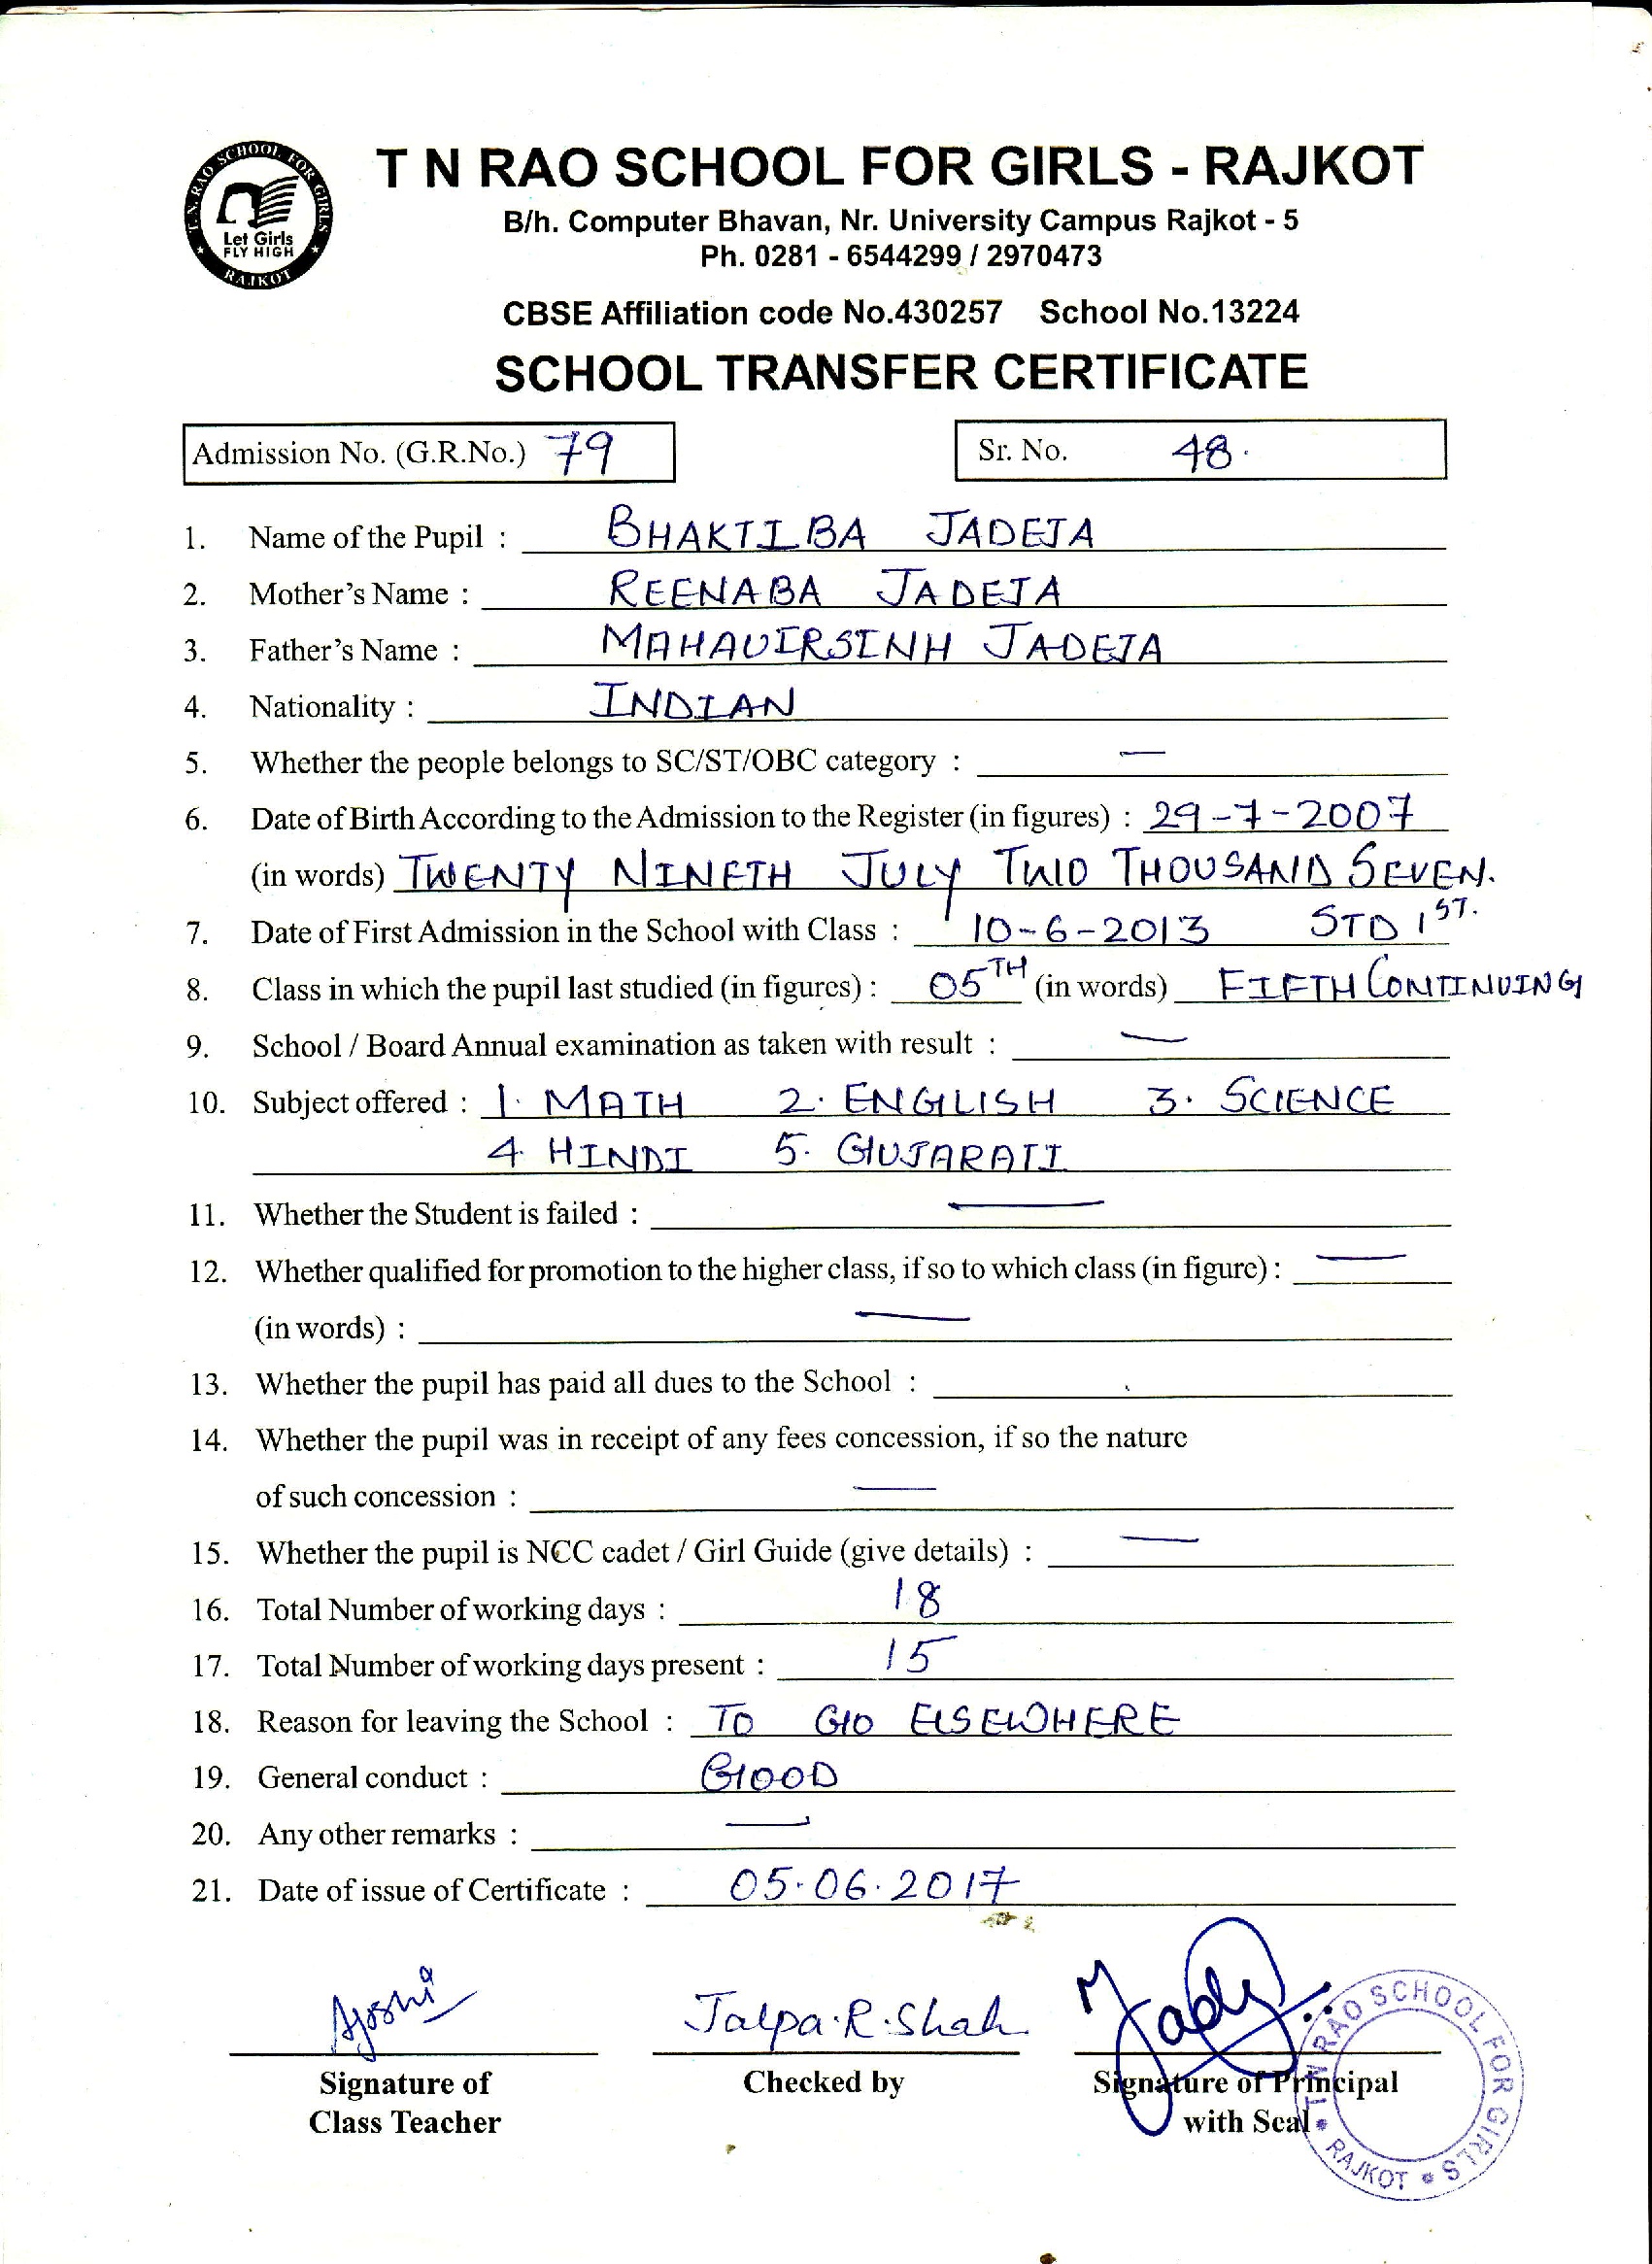 T. N. RAO SCHOOL FOR GIRLS
Let Girls
FLY HIGH
RAJKOT
T N RAO SCHOOL FOR GIRLS - RAJKOT
B/h. Computer Bhavan, Nr. University Campus Rajkot - 5
Ph. 0281 - 6544299 / 2970473
CBSE Affiliation code No.430257 School No.13224
SCHOOL TRANSFER CERTIFICATE
Admission No. (G.R.No.) 79 Sr. No. 48.
1. Name of the Pupil : BHAKTIBA JADEJA
2. Mother's Name : REENABA JADEJA
3. Father's Name : MAHAVIRSINH JADEJA
4. Nationality : INDIAN
5. Whether the people belongs to SC/ST/OBC category : —
6. Date of Birth According to the Admission to the Register (in figures) : 29-7-2007
(in words) TWENTY NINETH JULY TWO THOUSAND SEVEN.
7. Date of First Admission in the School with Class : 10-6-2013 STD 1ST.
8. Class in which the pupil last studied (in figures) : 05TH (in words) FIFTH CONTINUING
9. School / Board Annual examination as taken with result : —
10. Subject offered : 1. MATH 2. ENGLISH 3. SCIENCE
4. HINDI 5. GUJARATI
11. Whether the Student is failed : —
12. Whether qualified for promotion to the higher class, if so to which class (in figure) : —
(in words) : —
13. Whether the pupil has paid all dues to the School :
14. Whether the pupil was in receipt of any fees concession, if so the nature
of such concession : —
15. Whether the pupil is NCC cadet / Girl Guide (give details) : —
16. Total Number of working days : 18
17. Total Number of working days present : 15
18. Reason for leaving the School : TO GO ELSEWHERE
19. General conduct : GOOD
20. Any other remarks : —
21. Date of issue of Certificate : 05.06.2017
Jalpa.R.Shah
Signature of Checked by Signature of Principal
Class Teacher with Seal
T N RAO SCHOOL FOR GIRLS
RAJKOT